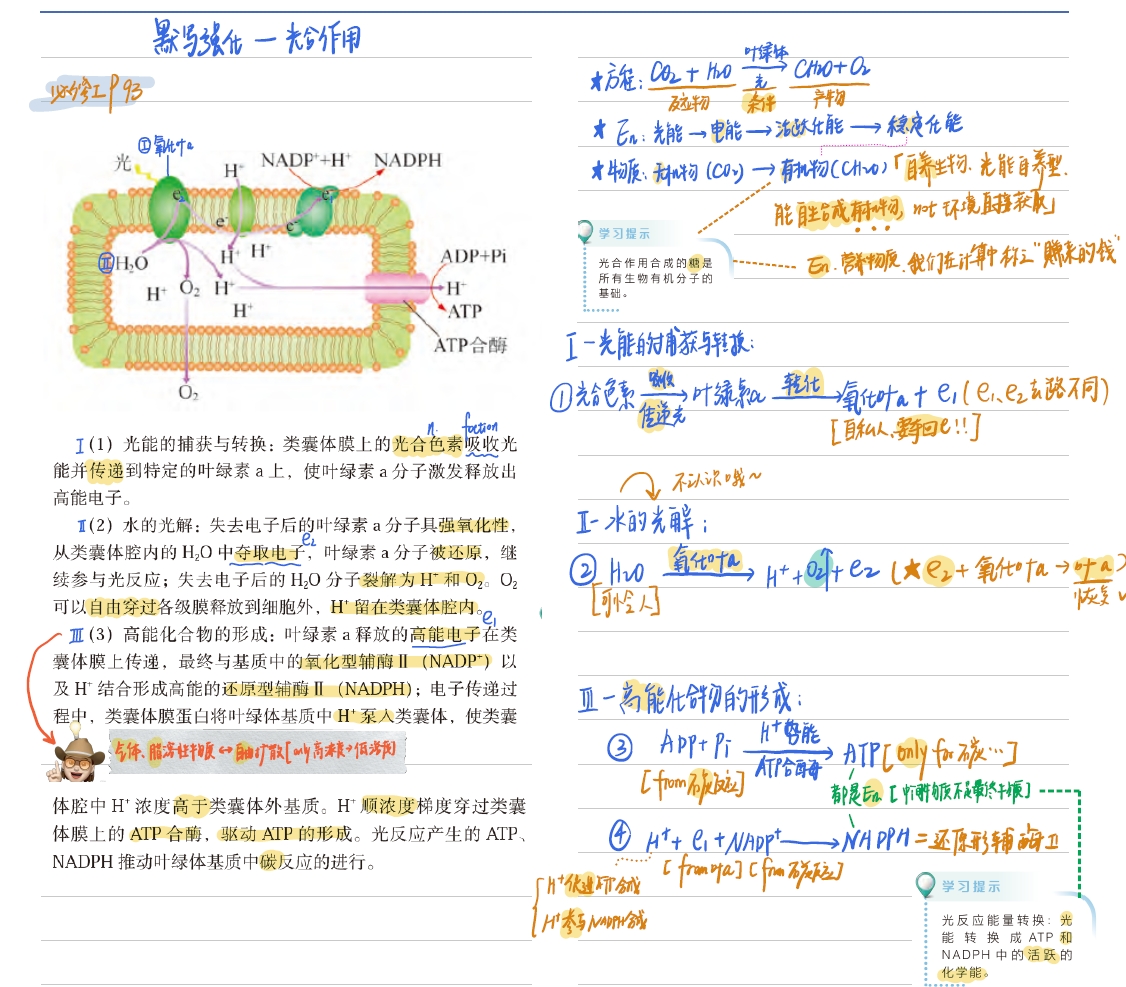 默写强化 — 光合作用
必修I P93
①氧化叶a
光
H⁺
NADP⁺+H⁺
NADPH
e₂
e⁻
e₁
e⁻
ⅡH₂O
H⁺
H⁺
ADP+Pi
H⁺
O₂
H⁺
H⁺
H⁺
ATP
ATP合酶
O₂
n.
Ⅰ(1) 光能的捕获与转换：类囊体膜上的光合色素吸收光
能并传递到特定的叶绿素 a 上，使叶绿素 a 分子激发释放出
高能电子。
Ⅱ(2) 水的光解：失去电子后的叶绿素 a 分子具强氧化性，
e₂
从类囊体腔内的 H₂O 中夺取电子，叶绿素 a 分子被还原，继
续参与光反应；失去电子后的 H₂O 分子裂解为 H⁺ 和 O₂。O₂
可以自由穿过各级膜释放到细胞外，H⁺ 留在类囊体腔内。
e₁
Ⅲ(3) 高能化合物的形成：叶绿素 a 释放的高能电子在类
囊体膜上传递，最终与基质中的氧化型辅酶Ⅱ（NADP⁺）以
及 H⁺ 结合形成高能的还原型辅酶Ⅱ（NADPH）；电子传递过
程中，类囊体膜蛋白将叶绿体基质中 H⁺ 泵入类囊体，使类囊
气体、脂溶性物质 ↔ 自由扩散[only 高浓度→低浓度]
体腔中 H⁺ 浓度高于类囊体外基质。H⁺ 顺浓度梯度穿过类囊
体膜上的 ATP 合酶，驱动 ATP 的形成。光反应产生的 ATP、
NADPH 推动叶绿体基质中碳反应的进行。
★方程：CO₂ + H₂O 叶绿体 → 光 CH₂O + O₂
反应物 条件 产物
★ En：光能 → 电能 → 活跃化能 → 稳定化能
★物质：无机物(CO₂) → 有机物(CH₂O)「自养生物．光能自养型．
能自主合成有机物，not 环境直接获取」
学习提示
光合作用合成的糖是
所有生物有机分子的
基础。
En．营养物质．我们在计算中称之"赚来的钱"
Ⅰ－光能的捕获与转换：
①光合色素 吸收 → 传递光 叶绿素a 转化 → 氧化叶a + e₁ (e₁、e₂去路不同)
[自私人，要夺回e!!]
不认识哦～
Ⅱ－水的光解；
② H₂O 氧化叶a → H⁺ + O₂↑ + e₂ (★e₂ + 氧化叶a → 叶a)
[可怜人]
恢复
Ⅲ－高能化合物的形成：
③ ADP + Pi H⁺势能 → ATP合酶 ATP [only for 碳…]
[from碳反应]
都是En
④ H⁺ + e₁ + NADP⁺ → NADPH = 还原形辅酶Ⅱ
[from叶a] [from碳反应]
H⁺促进ATP合成
H⁺参与NADPH合成
学习提示
光反应能量转换：光
能转换成ATP和
NADPH中的活跃的
化学能。